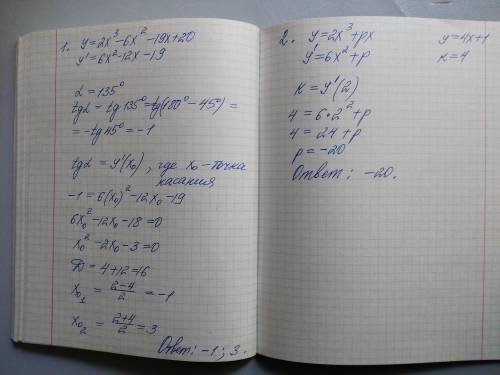 1. y = 2x³ - 6x² - 19x + 20
y' = 6x² - 12x - 19
α = 135°
tgα = tg 135° = tg(180° - 45°) =
= - tg 45° = -1
tgα = y'(x₀), где x₀ - точка
касания
-1 = 6(x₀)² - 12x₀ - 19
6x₀² - 12x₀ - 18 = 0
x₀² - 2x₀ - 3 = 0
D = 4 + 12 = 16
x₀₁ = (2-4)/2 = -1
x₀₂ = (2+4)/2 = 3
Ответ: -1; 3.
2. y = 2x³ + px y = 4x + 1
y' = 6x² + p k = 4
k = y'(2)
4 = 6 · 2² + p
4 = 24 + p
p = -20
Ответ: -20.